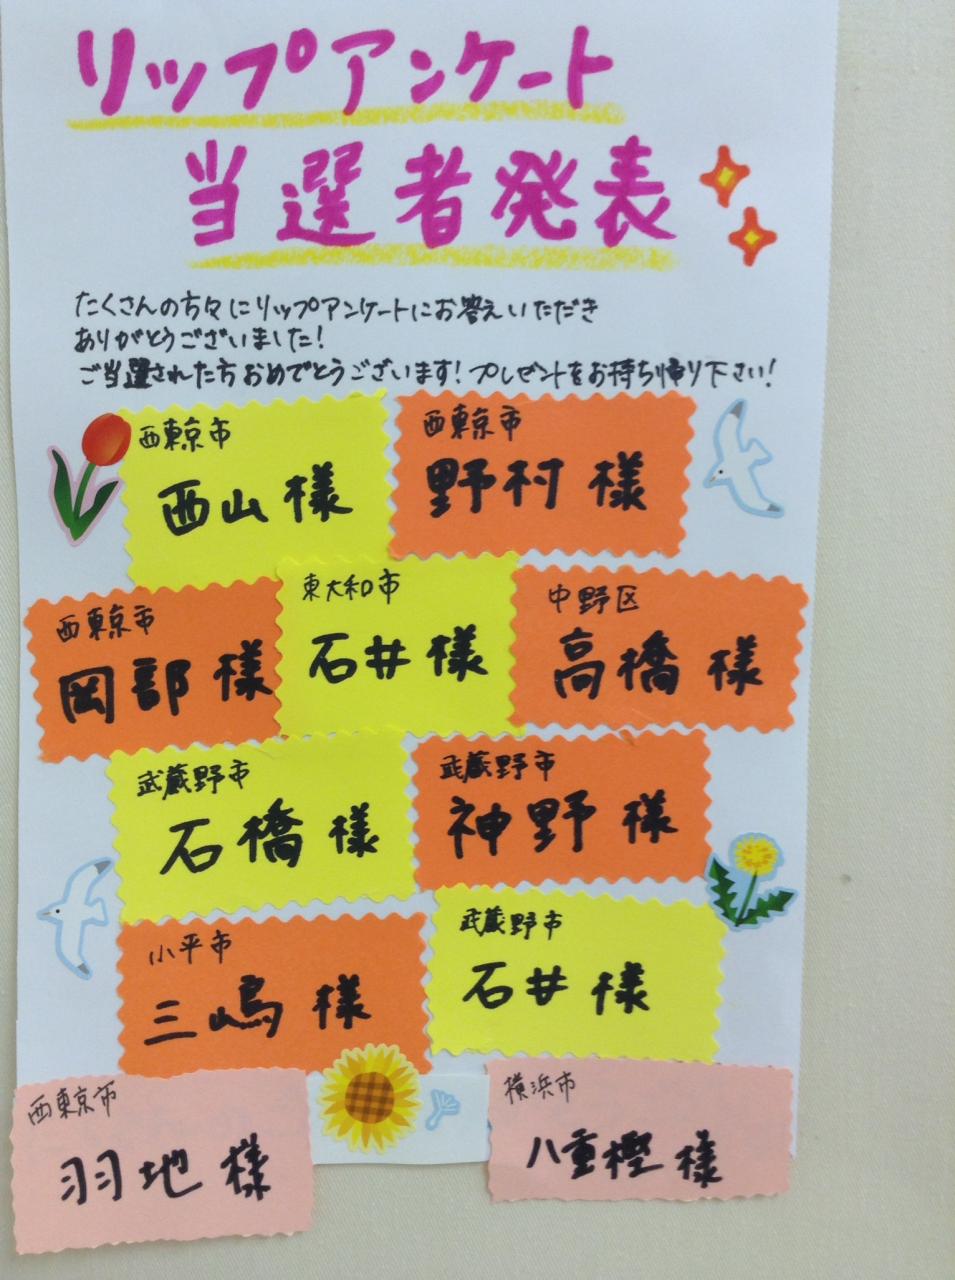 リップアンケート
当選者発表
たくさんの方々にリップアンケートにお答えいただき
ありがとうございました!
ご当選された方おめでとうございます!プレゼントをお持ち帰り下さい!
西東京市
西山様
西東京市
野村様
西東京市
岡部様
東大和市
石井様
中野区
高橋様
武蔵野市
石橋様
武蔵野市
神野様
小平市
三嶋様
武蔵野市
石井様
西東京市
羽地様
横浜市
八重樫様